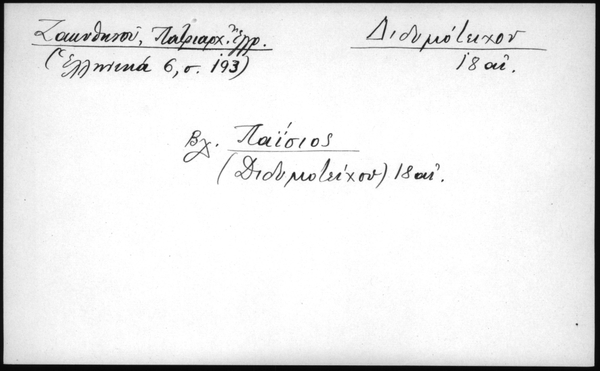 Ζακυθηνοῦ, Πατριαρχ. Ἔγγρ.
(Ἑλληνικά 6, σ. 193)
Διδυμότειχον
18 αἰ.
Βλ. Παΐσιος
(Διδυμοτείχου) 18 αἰ.